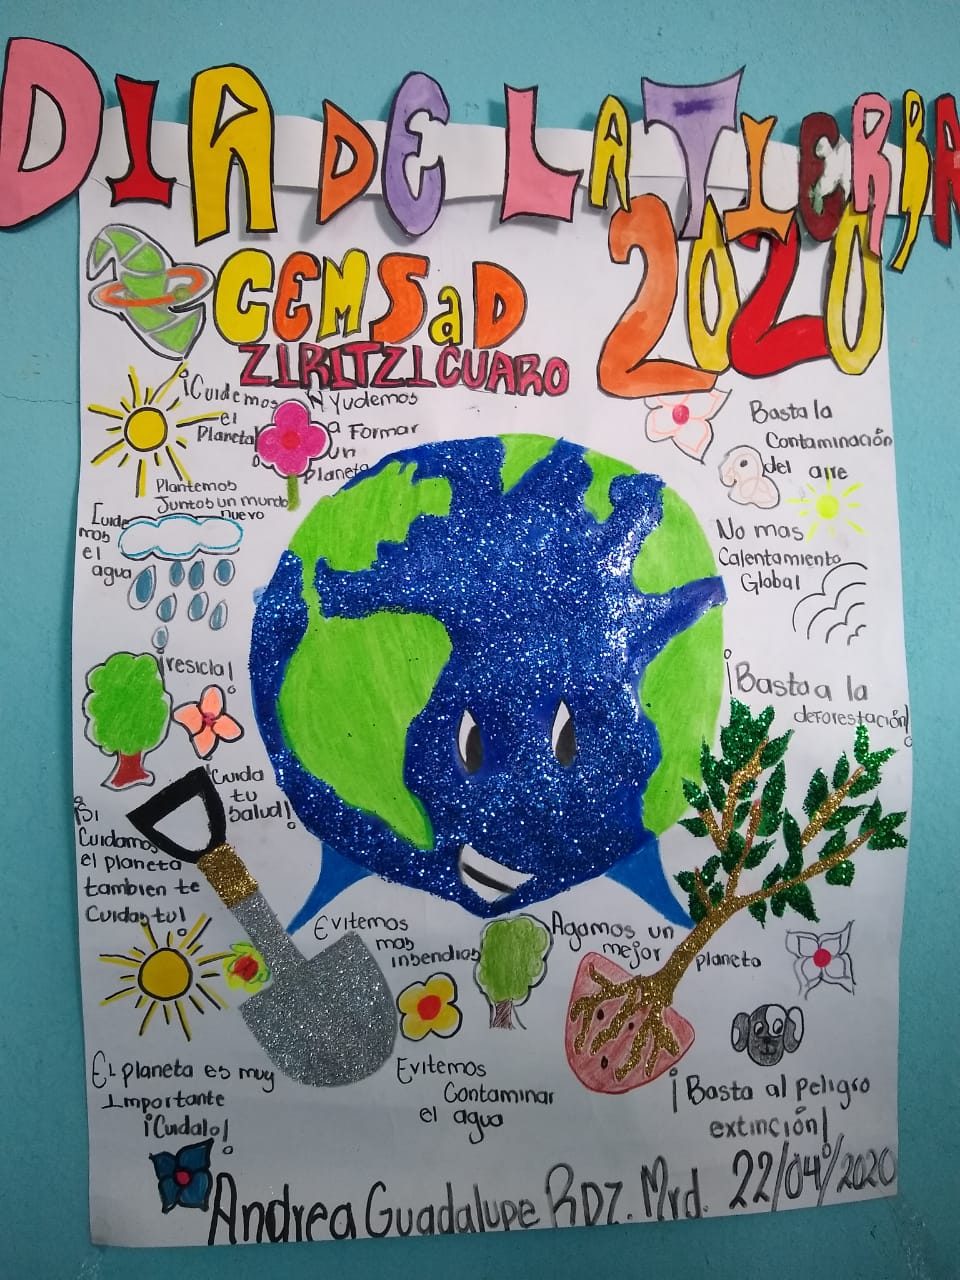 DIA DE LA TIERRA
2020
CEMSaD
ZIRITZICUARO
¡Cuidemos
el
Planeta!
AYudemos
a Formar
un
Planeta
Plantemos
Juntos un mundo
nuevo
Cuide
mos
el
agua
¡resicla!
Cuida
tu
Salud!
¡Si
Cuidamos
el planeta
tambien te
Cuidas tu!
Basta la
Contaminación
del aire
No mas
Calentamiento
Global
¡Basta a la
deforestación!
Evitemos
mas
insendios
Agamos un
mejor planeta
EL planeta es muy
Importante
¡Cuidalo!
Evitemos
Contaminar
el agua
¡Basta al Peligro
extinción!
Andrea Guadalupe RDZ. Mrd. 22/04/2020